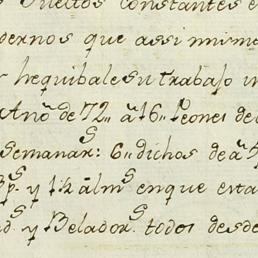 Sueltos Constantes e
dernos que assi mismo
hequibale su trabajo in
Año de 72,, a 16,, Peones de
Semanars: 6,, dichos de a 5
ps. y 1/2 alms en que esta
ds y Beladors todos desde